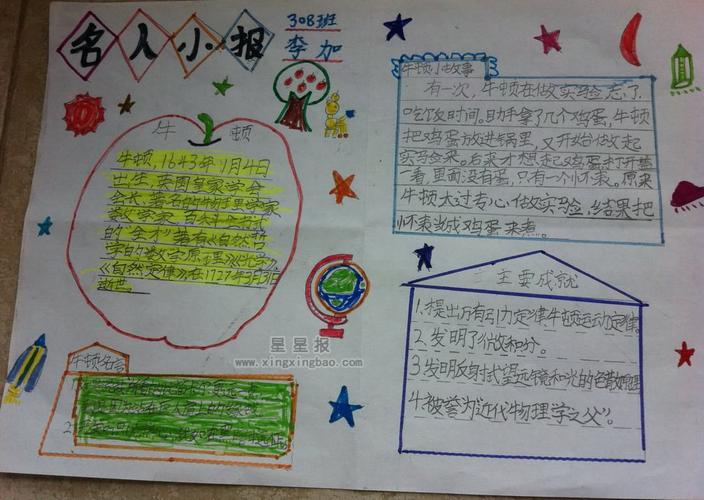 名人小报
308班
李加
牛顿
牛顿,1643年1月4日
出生,英国皇家学会
会长,著名的物理学家
数学家,百科全书
的"全才"著有《自然哲
学的数学原理》《光学》
《自然定律》在1727年3月31日
逝世。
牛顿名言
牛顿小故事
有一次,牛顿在做实验忘了
吃饭时间。助手拿了几个鸡蛋,牛顿
把鸡蛋放进锅里,又开始做起
实验来。后来才想起鸡蛋打开盖
一看,里面没有蛋,只有一个怀表。原来
牛顿太过专心做实验,结果把
怀表当成鸡蛋来煮。
主要成就
1.提出万有引力定律牛顿运动定律。
2.发明了微积分。
3.发明反射式望远镜和光的色散原理
4.被誉为"近代物理学之父"。
星星报
www.xingxingbao.com